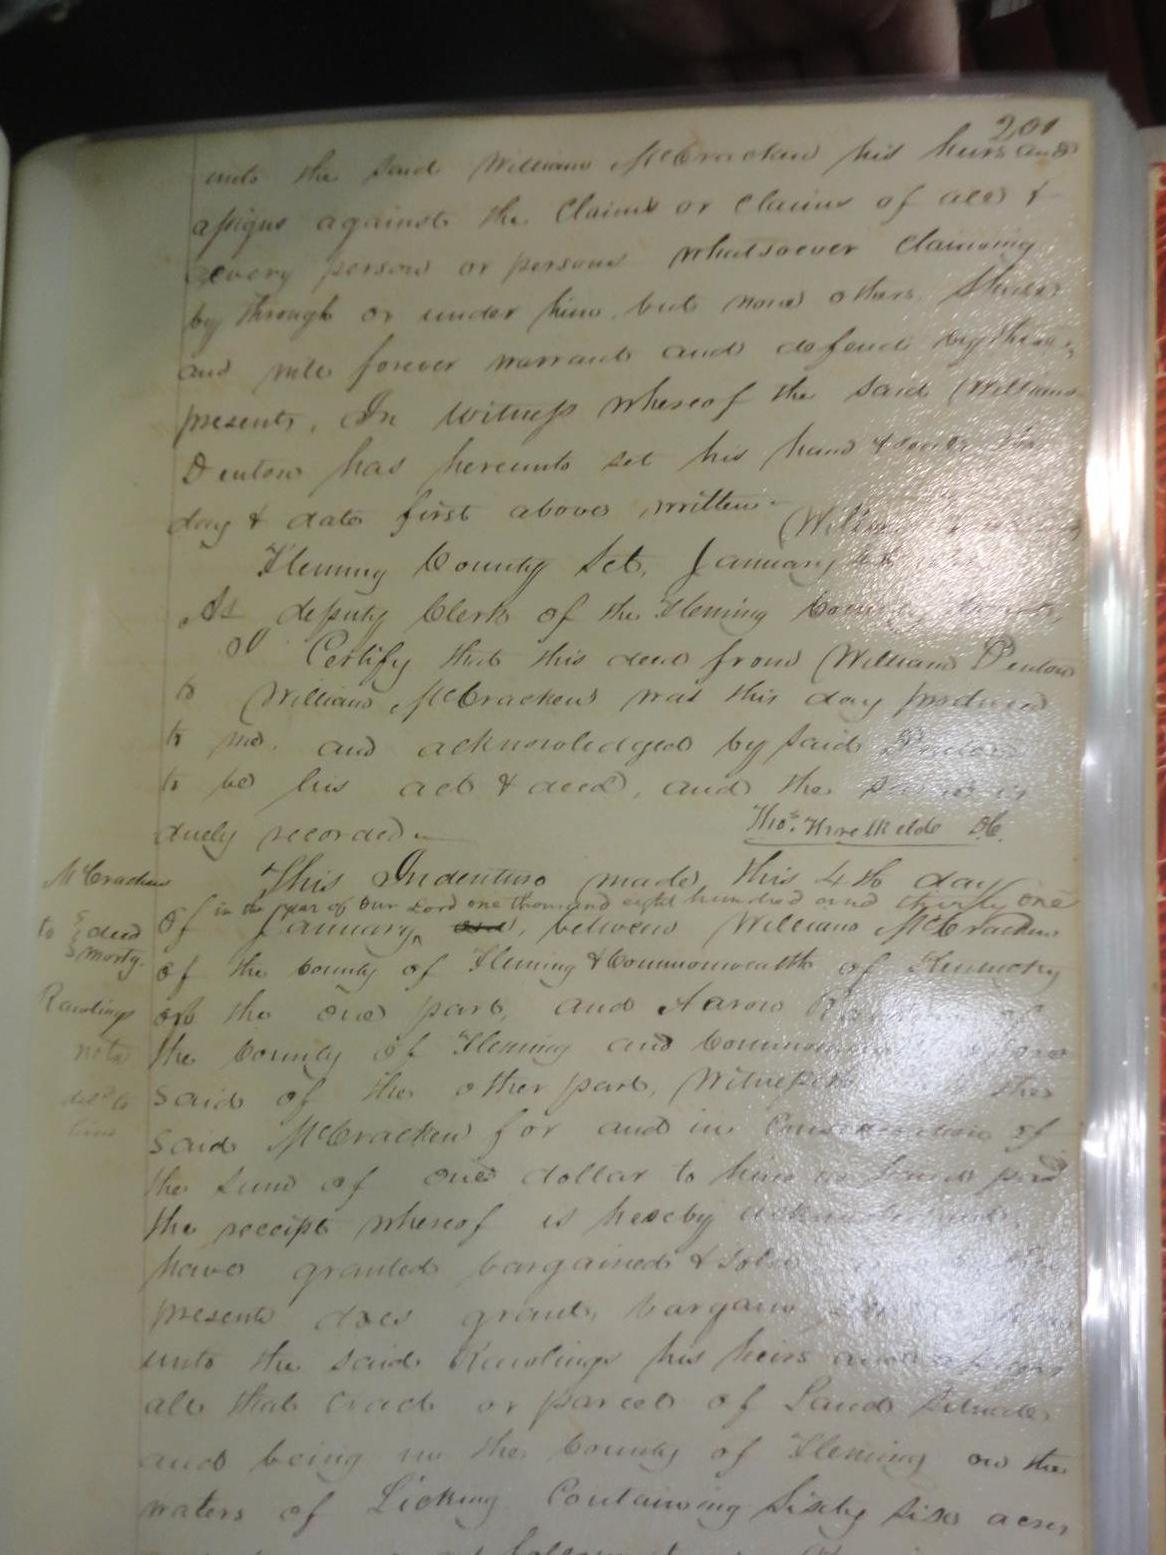 201
unto the said William McCracken his heirs and
assigns against the Claims or claims of all &
every person or persons whatsoever claiming
by through or under him but none others Shall
and will forever warrant and defend by these
presents, In Witness whereof the said William
Denton has hereunto set his hand & seal the
day & date first above written
Fleming County Sct, January 4th
As deputy Clerk of the Fleming County Court,
I Certify that this deed from William Denton
to William McCracken was this day produced
to me. and acknowledged by said Denton
to be his act & deed, and the same is
duely recorded
Thos. Threlkelde DC.
McCracken
to deed mortg.
Rawlings
note
deld to
him
This Indenture made this 4th day
in the year of our Lord one thousand eight hundred and thirty one
of January, between William McCracken
of the County of Fleming & Commonwealth of Kentucky
of the one part, and Aaron
the County of Fleming and Commonwealth afore
said of the other part, Witnesseth the
said McCracken for and in Consideration of
the Sum of one dollar to him in hand paid
the receipt whereof is hereby
have granted bargained & sold
presents does grant, bargain
unto the said Rawlings his heirs and assigns
all that tract or parcel of Land Situate
and being in the County of Fleming on the
waters of Licking Containing Sixty six acres